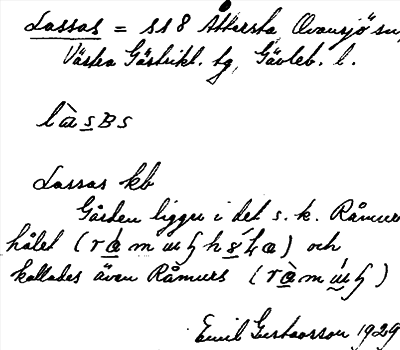 Lassas = ss 8 Åttersta, Ovansjö sn,
Västra Gästrikl. tg, Gävleb. l.
làsBs
Lassas kb
Gården ligger i det s. k. Råmurs
hålet ( ) och
kallades även Råmurs ( )
Emil Gustavsson 1929